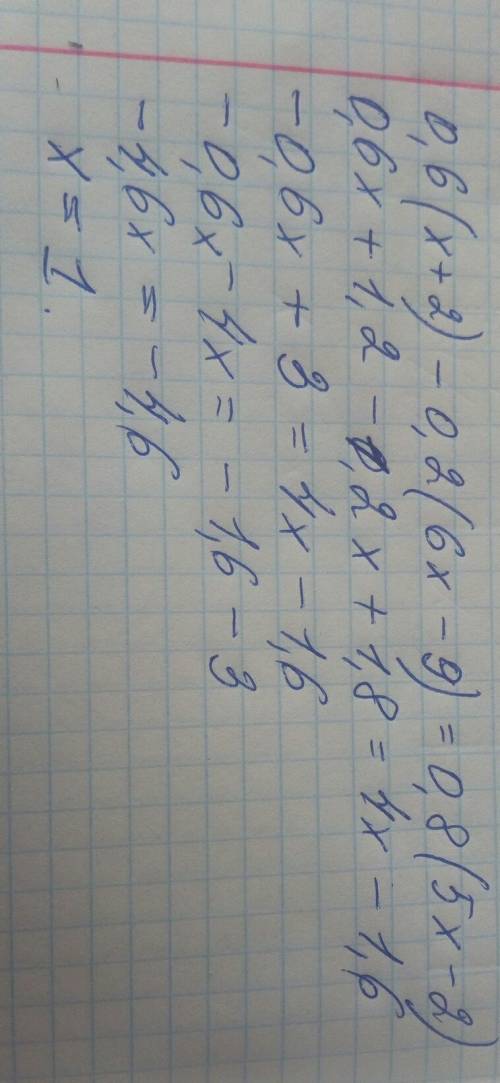 0,6(x+2) - 0,2(6x - 9) = 0,8(5x - 2)
0,6x + 1,2 - 1,2x + 1,8 = 4x - 1,6
- 0,6x + 3 = 4x - 1,6
- 0,6x - 4x = - 1,6 - 3
- 4,6x = - 4,6
x = 1.